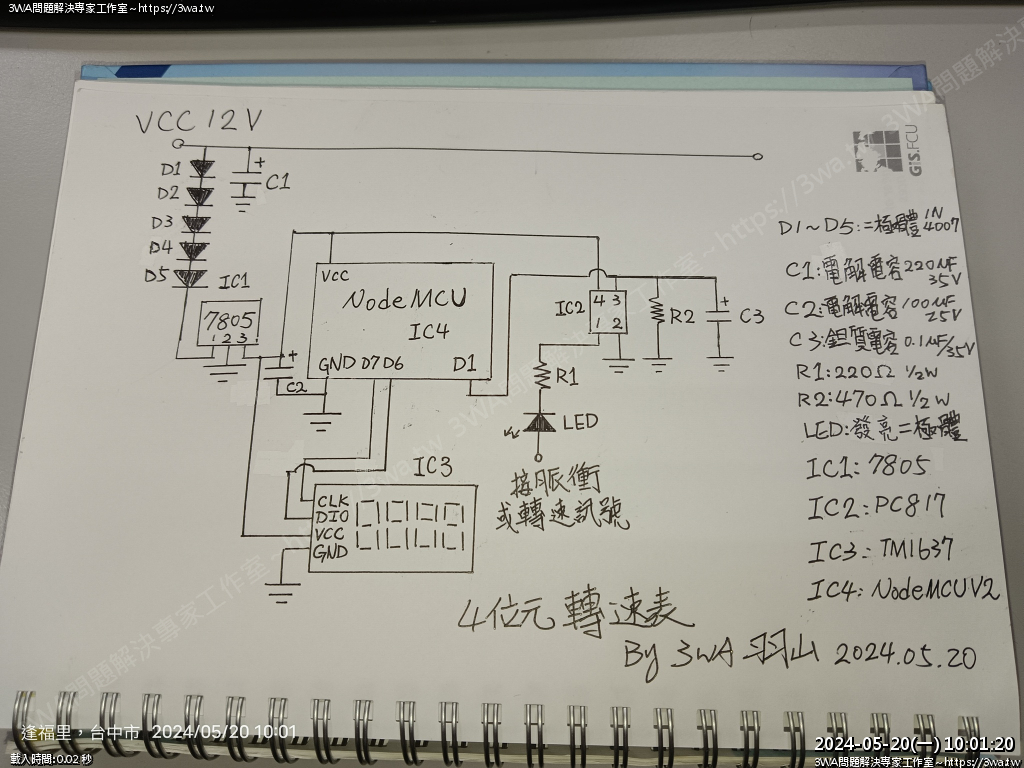 3WA問題解決專家工作室~https://3wa.tw
VCC 12V
D1
D2
D3
D4
D5
C1
IC1
7805
1 2 3
C2
VCC
NodeMCU
IC4
GND D7 D6 D1
IC2
4 3
1 2
R2
C3
R1
LED
接脈衝
或轉速訊號
IC3
CLK
DIO
VCC
GND
GIS.FCU
D1~D5:二極體 1N4007
C1:電解電容220uF 35V
C2:電解電容100uF 25V
C3:鉭質電容0.1uF/35V
R1:220Ω 1/2W
R2:470Ω 1/2W
LED:發亮二極體
IC1:7805
IC2:PC817
IC3:TM1637
IC4:NodeMCUV2
4位元 轉速表
By 3WA 羽山 2024.05.20
逢福里,台中市 2024/05/20 10:01
載入時間:0.02 秒
2024-05-20(一) 10:01:20
3WA問題解決專家工作室~https://3wa.tw